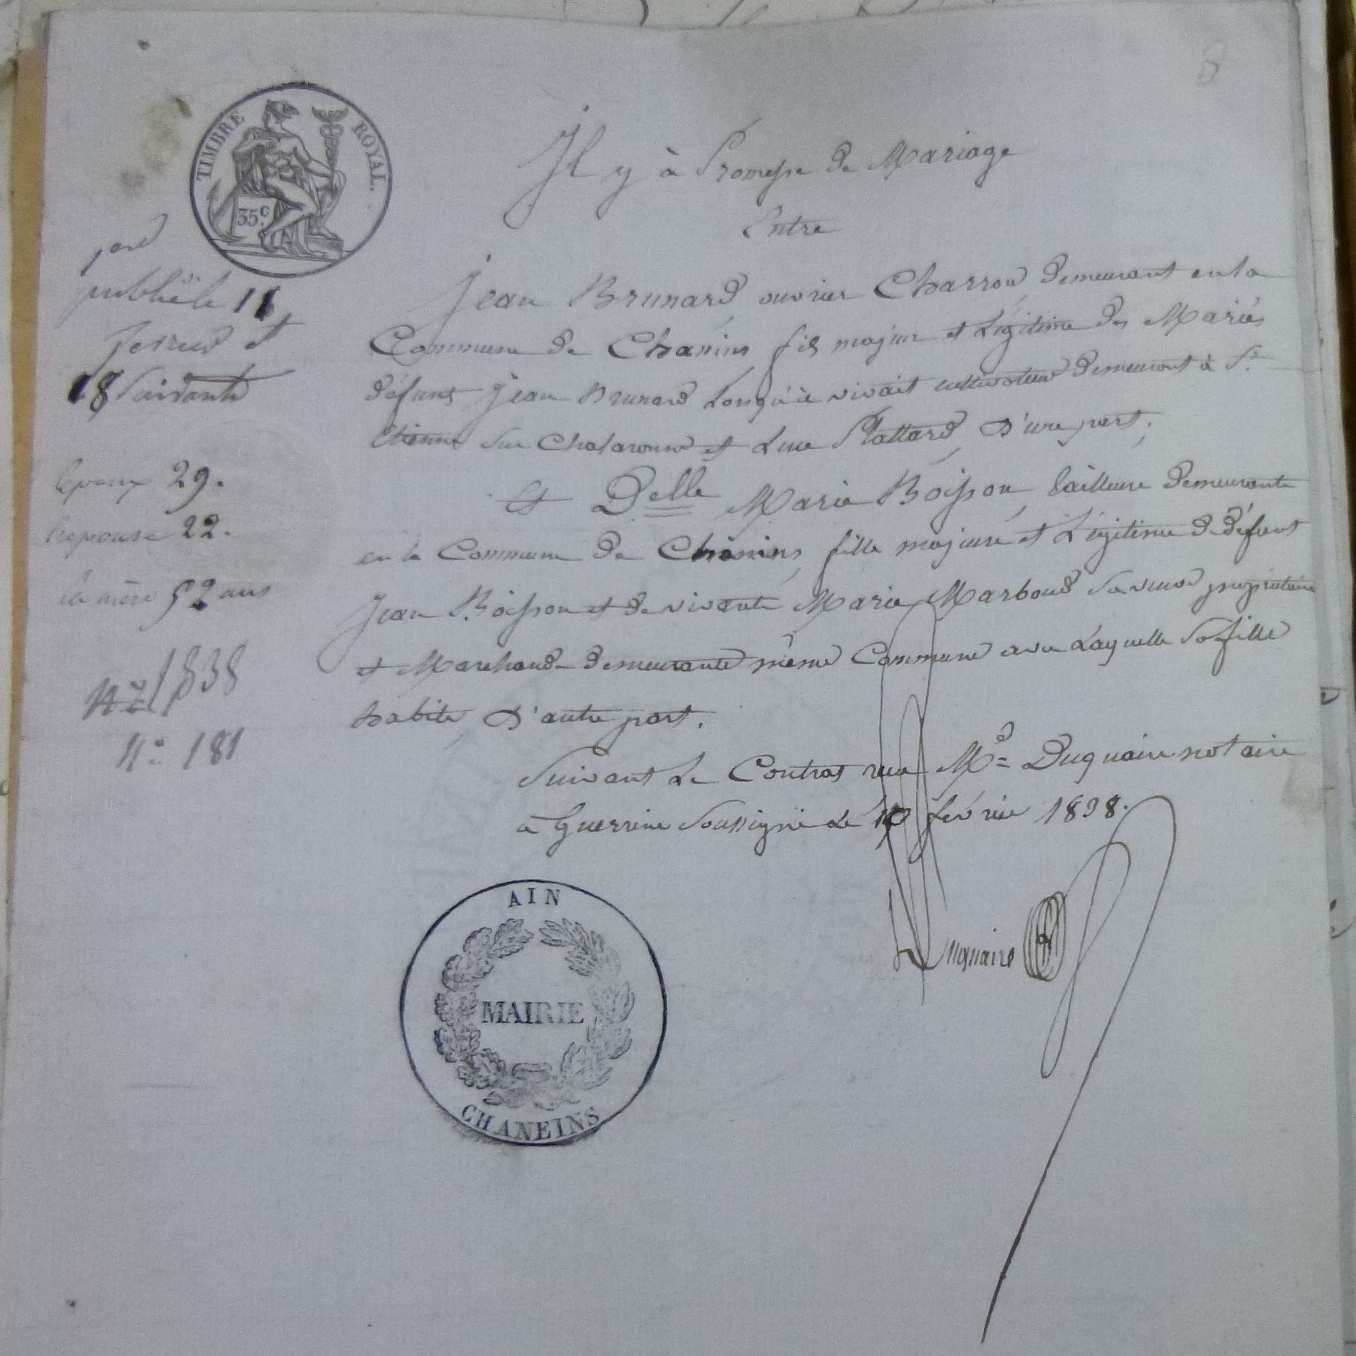 8
TIMBRE ROYAL.
35c.
Il y à Promesse de Mariage
Entre
Jean Brunard, ouvrier Charron, demeurant en la
Commune de Chanins fils majeur et Légitime des Mariés
défunt Jean Brunard Lorsqu'il vivait cultivateur demeurant à St
Etienne sur Chalaronne et Luce Plattard, D'une part,
Et Delle Marie Boisson, tailleure demeurante
en la Commune de Chanins, fille majeure et Légitime de défunt
Jean Boisson et de vivante Marie Marboud sa veuve propriétaire
et Marchande demeurante même Commune avec Laquelle Sa fille
habite, D'autre part.
Suivant Le Contrat reçu Me Duquaire notaire
à Guerrins Soussigné Le février 1838.
Duquaire
publié le 11
février et
18 Suivante
l'epoux 29.
l'epouse 22.
la mère 52 ans
1838
N° 181
AIN
MAIRIE
CHANEINS